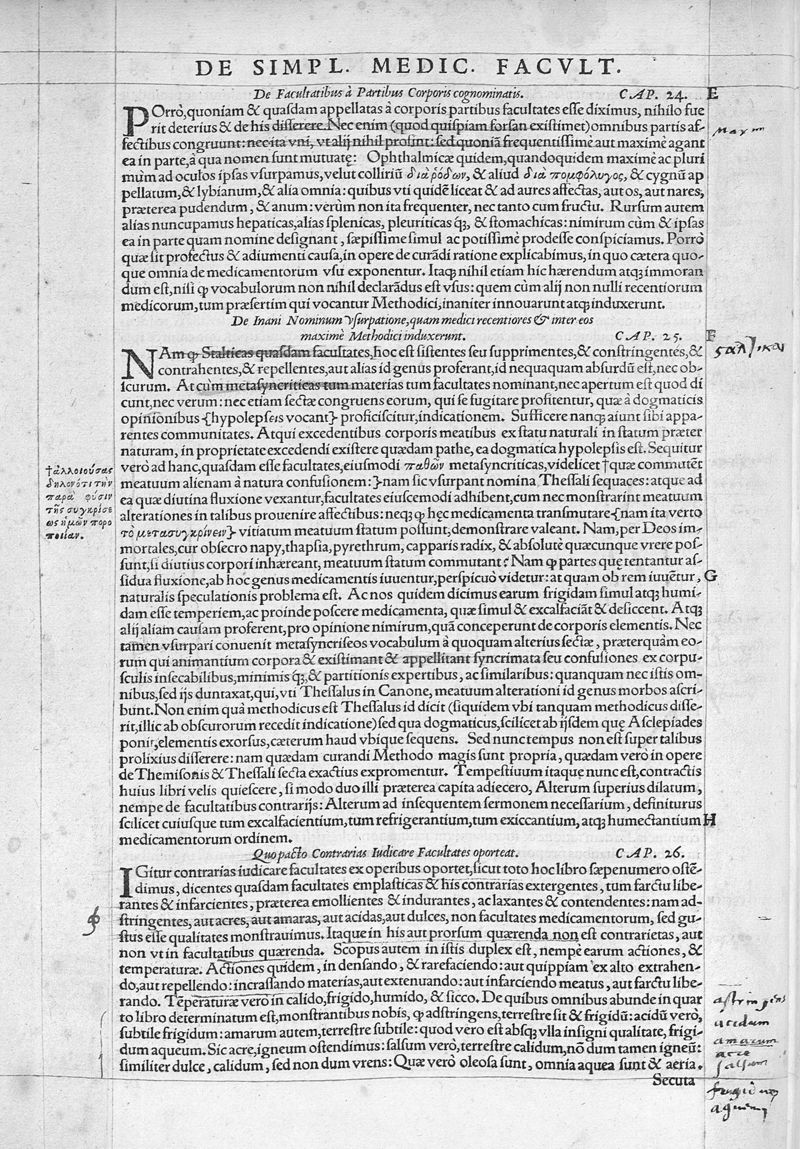 DE SIMPL. MEDIC. FACVLT.
De Facultatibus à Partibus Corporis cognominatis. CAP. 24. E
POrrò, quoniam & quasdam appellatas à corporis partibus facultates esse diximus, nihilo fue
rit deterius & de his disserere. Nec enim (quod quispiam forsan existimet) omnibus partis af-
fectibus congruunt: nec ita vni, vt alij nihil prosint: sed quoniā frequentissimè aut maximè agant
ea in parte, à qua nomen sunt mutuatę: Ophthalmicæ quidem, quandoquidem maximè ac pluri
mùm ad oculos ipsas vsurpamus, velut colliriū διαρόδων, & aliud διὰ πομφόλυγος, & cygnū ap
pellatum, & lybianum, & alia omnia: quibus vti quidē liceat & ad aures affectas, aut os, aut nares,
præterea pudendum, & anum: verùm non ita frequenter, nec tanto cum fructu. Rursum autem
alias nuncupamus hepaticas, alias splenicas, pleuriticas q;, & stomachicas: nimirum cùm & ipsas
ea in parte quam nomine designant, sæpissimè simul ac potissimè prodesse conspiciamus. Porrò
quæ sit profectus & adiumenti causa, in opere de curādi ratione explicabimus, in quo cætera quo-
que omnia de medicamentorum vsu exponentur. Itaq; nihil etiam hic hærendum atq; immoran
dum est, nisi q vocabulorum non nihil declarādus est vsus: quem cùm alij non nulli recentiorum
medicorum, tum præsertim qui vocantur Methodici, inaniter innouarunt atq; induxerunt.
De Inani Nominum vsurpatione, quam medici recentiores & inter eos
maximè Methodici induxerunt. CAP. 25. F
NAm q Stalticas quasdam facultates, hoc est sistentes seu supprimentes, & constringentes, &
contrahentes, & repellentes, aut alias id genus proferant, id nequaquam absurdū est, nec ob-
scurum. At cùm metasyncriticas tum materias tum facultates nominant, nec apertum est quod di
cunt, nec verum: nec etiam sectæ congruens eorum, qui se fugitare profitentur, quæ à dogmaticis
opinionibus {hypolepseis vocant} proficiscitur, indicationem. Sufficere nanq; aiunt sibi appa-
rentes communitates. Atqui excedentibus corporis meatibus ex statu naturali in statum præter
naturam, in proprietate excedendi existere quædam pathe, ea dogmatica hypolepsis est. Sequitur
verò ad hanc, quasdam esse facultates, eiusmodi παθῶν metasyncriticas, videlicet †quæ commutēt
meatuum alienam à natura confusionem: }nam sic vsurpant nomina Thessali sequaces: atque ad
ea quæ diutina fluxione vexantur, facultates eiuscemodi adhibent, cum nec monstrarint meatuum
alterationes in talibus prouenire affectibus: neq; q hęc medicamenta transmutare {nam ita verto
τὸ μετασυγκρίνειν} vitiatum meatuum statum possunt, demonstrare valeant. Nam, per Deos im-
mortales, cur obsecro napy, thapsia, pyrethrum, capparis radix, & absolutè quæcunque vrere pos-
sunt, si diutius corpori inhæreant, meatuum statum commutant? Nam q partes quę tentantur as-
sidua fluxione, ab hoc genus medicamentis iuuentur, perspicuò videtur: at quam ob rem iuuētur, G
naturalis speculationis problema est. Ac nos quidem dicimus earum frigidam simul atq; humi-
dam esse temperiem, ac proinde poscere medicamenta, quæ simul & excalfaciāt & desiccent. Atq;
alij aliam causam proferent, pro opinione nimirum, quā conceperunt de corporis elementis. Nec
tamen vsurpari conuenit metasyncriseos vocabulum à quoquam alterius sectæ, præterquàm eo-
rum qui animantium corpora & existimant & appellitant syncrimata seu confusiones ex corpu-
sculis insecabilibus, minimis q;, & partitionis expertibus, ac similaribus: quanquam nec istis om-
nibus, sed ijs duntaxat, qui, vti Thessalus in Canone, meatuum alterationi id genus morbos ascri-
bunt. Non enim quà methodicus est Thessalus id dicit (siquidem vbi tanquam methodicus disse-
rit, illic ab obscurorum recedit indicatione) sed qua dogmaticus, scilicet ab ijsdem quę Asclepiades
ponit, elementis exorsus, cæterum haud vbique sequens. Sed nunc tempus non est super talibus
prolixius disserere: nam quædam curandi Methodo magis sunt propria, quædam verò in opere
de Themisonis & Thessali secta exactius expromentur. Tempestiuum itaque nunc est, contractis
huius libri velis quiescere, si modo duo illi præterea capita adiecero, Alterum superius dilatum,
nempe de facultatibus contrarijs: Alterum ad insequentem sermonem necessarium, definiturus
scilicet cuiusque tum excalfacientium, tum refrigerantium, tum exiccantium, atq; humectantium H
medicamentorum ordinem.
Quo pacto Contrarias Iudicare Facultates oporteat. CAP. 26.
IGitur contrarias iudicare facultates ex operibus oportet, sicut toto hoc libro sæpenumero ostē-
dimus, dicentes quasdam facultates emplasticas & his contrarias extergentes, tum farctu libe-
rantes & infarcientes, præterea emollientes & indurantes, ac laxantes & contendentes: nam ad-
stringentes, aut acres, aut amaras, aut acidas, aut dulces, non facultates medicamentorum, sed gu-
stus esse qualitates monstrauimus. Itaque in his aut prorsum quærenda non est contrarietas, aut
non vt in facultatibus quærenda. Scopus autem in istis duplex est, nempè earum actiones, &
temperaturæ. Actiones quidem, in densando, & rarefaciendo: aut quippiam ex alto extrahen-
do, aut repellendo: incrassando materias, aut extenuando: aut infarciendo meatus, aut farctu libe-
rando. Tēperaturæ verò in calido, frigido, humido, & sicco. De quibus omnibus abunde in quar
to libro determinatum est, monstrantibus nobis, q adstringens, terrestre sit & frigidū: acidū verò,
subtile frigidum: amarum autem, terrestre subtile: quod vero est absq; vlla insigni qualitate, frigi-
dum aqueum. Sic acre, igneum ostendimus: salsum verò, terrestre calidum, nō dum tamen igneū:
similiter dulce, calidum, sed non dum vrens: Quæ verò oleosa sunt, omnia aquea sunt & aëria.
Secuta
†ἀλλοιούσας
δηλονότι τὴν
παρὰ φύσιν
τῆς συγκρίσε
ως ἡμῶν πορο
ποιΐαν.
astringens
acidum
amarum
acre
salsum